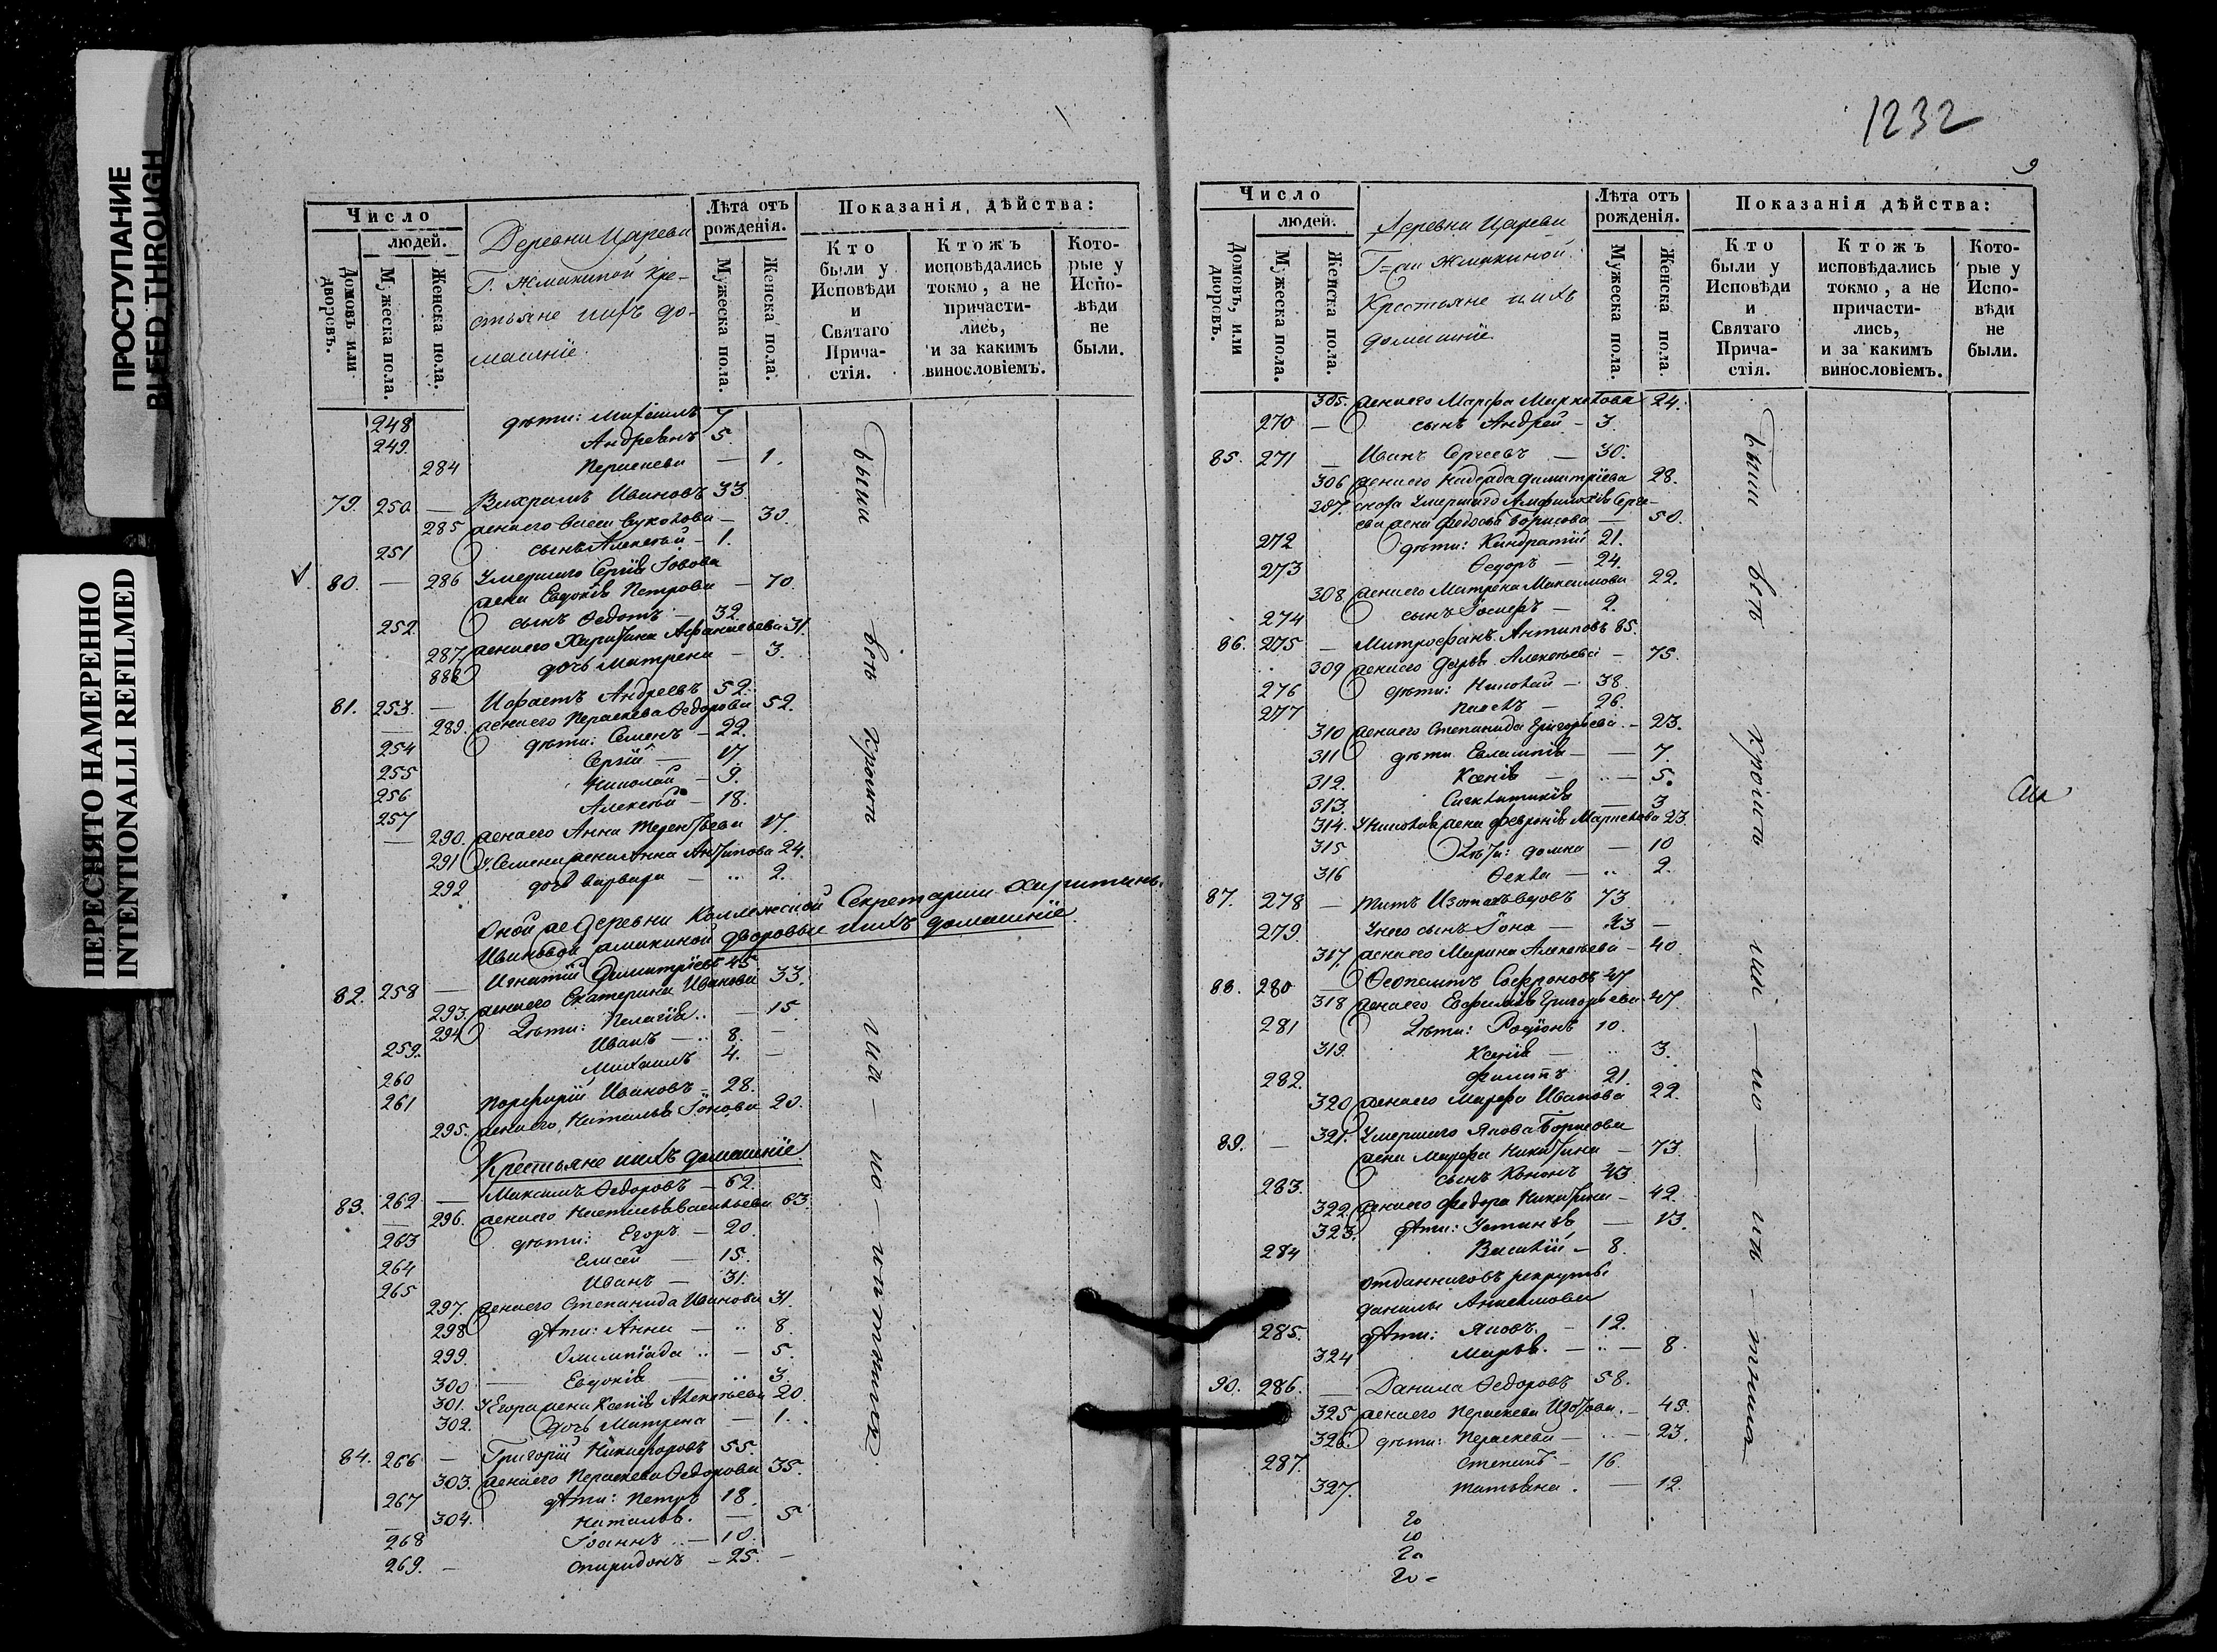 ПРОСТУПАНИЕ
BLEED THROUGH
ПЕРЕСНЯТО НАМЕРЕННО
INTENTIONALLI REFILMED
Число
людей.
Домовъ или дворовъ.
Мужеска пола.
Женска пола.
Деревни Царева
Г. Жмакиной Кре-
стьяне ихъ до-
машніе.
Лѣта отъ рожденія.
Мужеска пола.
Женска пола.
Показанія дѣйства:
Кто были у Исповѣди и Святаго Причастія.
Ктожъ исповѣдались токмо, а не причастились, и за какимъ винословіемъ.
Которые у Исповѣди не были.
248 дѣти: Михаилъ 7
249. Андреанъ 5.
284 Перасковия — 1.
79. 250 — Ивановъ 33.
285 жена его 30.
251 сынъ Алексѣй — 1.
80. — 286 Умершаго Сергія Іовова
жена Евдокія Петрова — 70.
252 сынъ Ѳедотъ — 32.
287. жена его Харитина Афанасьева 31.
888 дочь Матрена — 3.
81. 253. — Андреевъ 52.
289. жена его Параскева Ѳедорова 52.
254 дѣти: Семенъ — 22.
255 Сергій — 17.
256 Николай — 9.
257 Алексѣй — 18.
290. жена его Анна Терентьева 17.
291 У Семена жена Анна Антипова 24.
292 дочь Варвара — 2.
Оной же деревни Коллежской Секретарши Харитины
Ивановой Жмакиной дворовые ихъ домашніе
82. 258 — Игнатій Димитріевъ 45
293. жена его Екатерина Иванова 33.
294 Дѣти: Пелагія — 15
259. Иванъ — 8. —
260 Михаилъ 4. —
261 Порфирій Ивановъ — 28.
295. жена его Наталья Іонова 20.
Крестьяне ихъ домашніе
83. 262 — Максимъ Ѳедоровъ — 62.
296. жена его Настасья Васильева 63.
263 дѣти: Егоръ — 20.
264 Елисей — 15.
265 Иванъ — 31.
297. жена его Степанида Иванова 31.
298 дѣти: Анна — 8.
299. Олимпіада — 5.
300 Евдокія — 3.
301. У Егора жена Ксенія Алексѣева 20.
302. дочь Матрена — 1.
84. 266 — Григорій Никифоровъ 55.
303. жена его Параскева Ѳедорова 35.
267 дѣти: Петръ 18.
304. Наталья. — 5
268 Іоаннъ — 10.
269. — Спиридонъ — 25. —
были
1232
9
Число
людей.
Домовъ, или дворовъ.
Мужеска пола.
Женска пола.
Деревни Царева
Г=жи Жмакиной
Крестьяне и ихъ
домашніе.
Лѣта отъ рожденія.
Мужеска пола.
Женска пола.
Показанія дѣйства:
Кто были у Исповѣди и Святаго Причастія.
Ктожъ исповѣдались токмо, а не причастились, и за какимъ винословіемъ.
Которые у Исповѣди не были.
305. жена его Марфа 24.
270 — сынъ Андрей — 3.
85. 271 — Иванъ Сергеевъ — 30.
306 жена его Надежда Димитріева 28.
287. сноха Умершаго Амфилохія Серге-
ева жена Федосья Борисова — 50.
272 дѣти: Кандратій 21.
273 Ѳедоръ — 24.
308. жена его Матрена Максимова 22.
274 сынъ Іосифъ — 2.
86. 275 — Митрофанъ Антиповъ 85.
309 жена его Дарья Алексѣева — 75.
276 дѣти: Николай — 38.
277 Павелъ — 26.
310 жена его Степанида Григорьева — 23.
311 дѣти Евлампія — 7.
312. Ксенія — 5.
313. Синклитикія — 3
314. У Николая жена Февронія 23.
315 Дѣти: Домна — 10
316 Ѳекла — 2.
87. 278 — Титъ 73
279. У него сынъ Іона — 43 —
317. жена его Марина Алексѣева — 40
88. 280 — Ѳеопемтъ Сафроновъ 47
318 жена его Евфимія Григорьева 47.
281 Дѣти: Родіонъ 10.
319. Ксенія — 3.
282. Филиппъ 21.
320 жена его Марфа Иванова 22.
89. — 321. Умершаго Якова Борисова
жена Марфа Никитина — 73.
283. сынъ Кононъ 43
322. жена его Федора Никитина — 42.
323. дѣти: Устинья — 13.
284 Василій — 8.
Отданнаго въ рекруты
Данилы Анисимова
285. дѣти: Яковъ — 12.
324 Марья. — 8.
90. 286. — Данила Ѳедоровъ 58.
325 жена его Параскева — 45.
326. дѣти: Параскева — 23.
287. Степанъ — 16.
327. Татьяна. — 12.
20
10
20
20 —
были